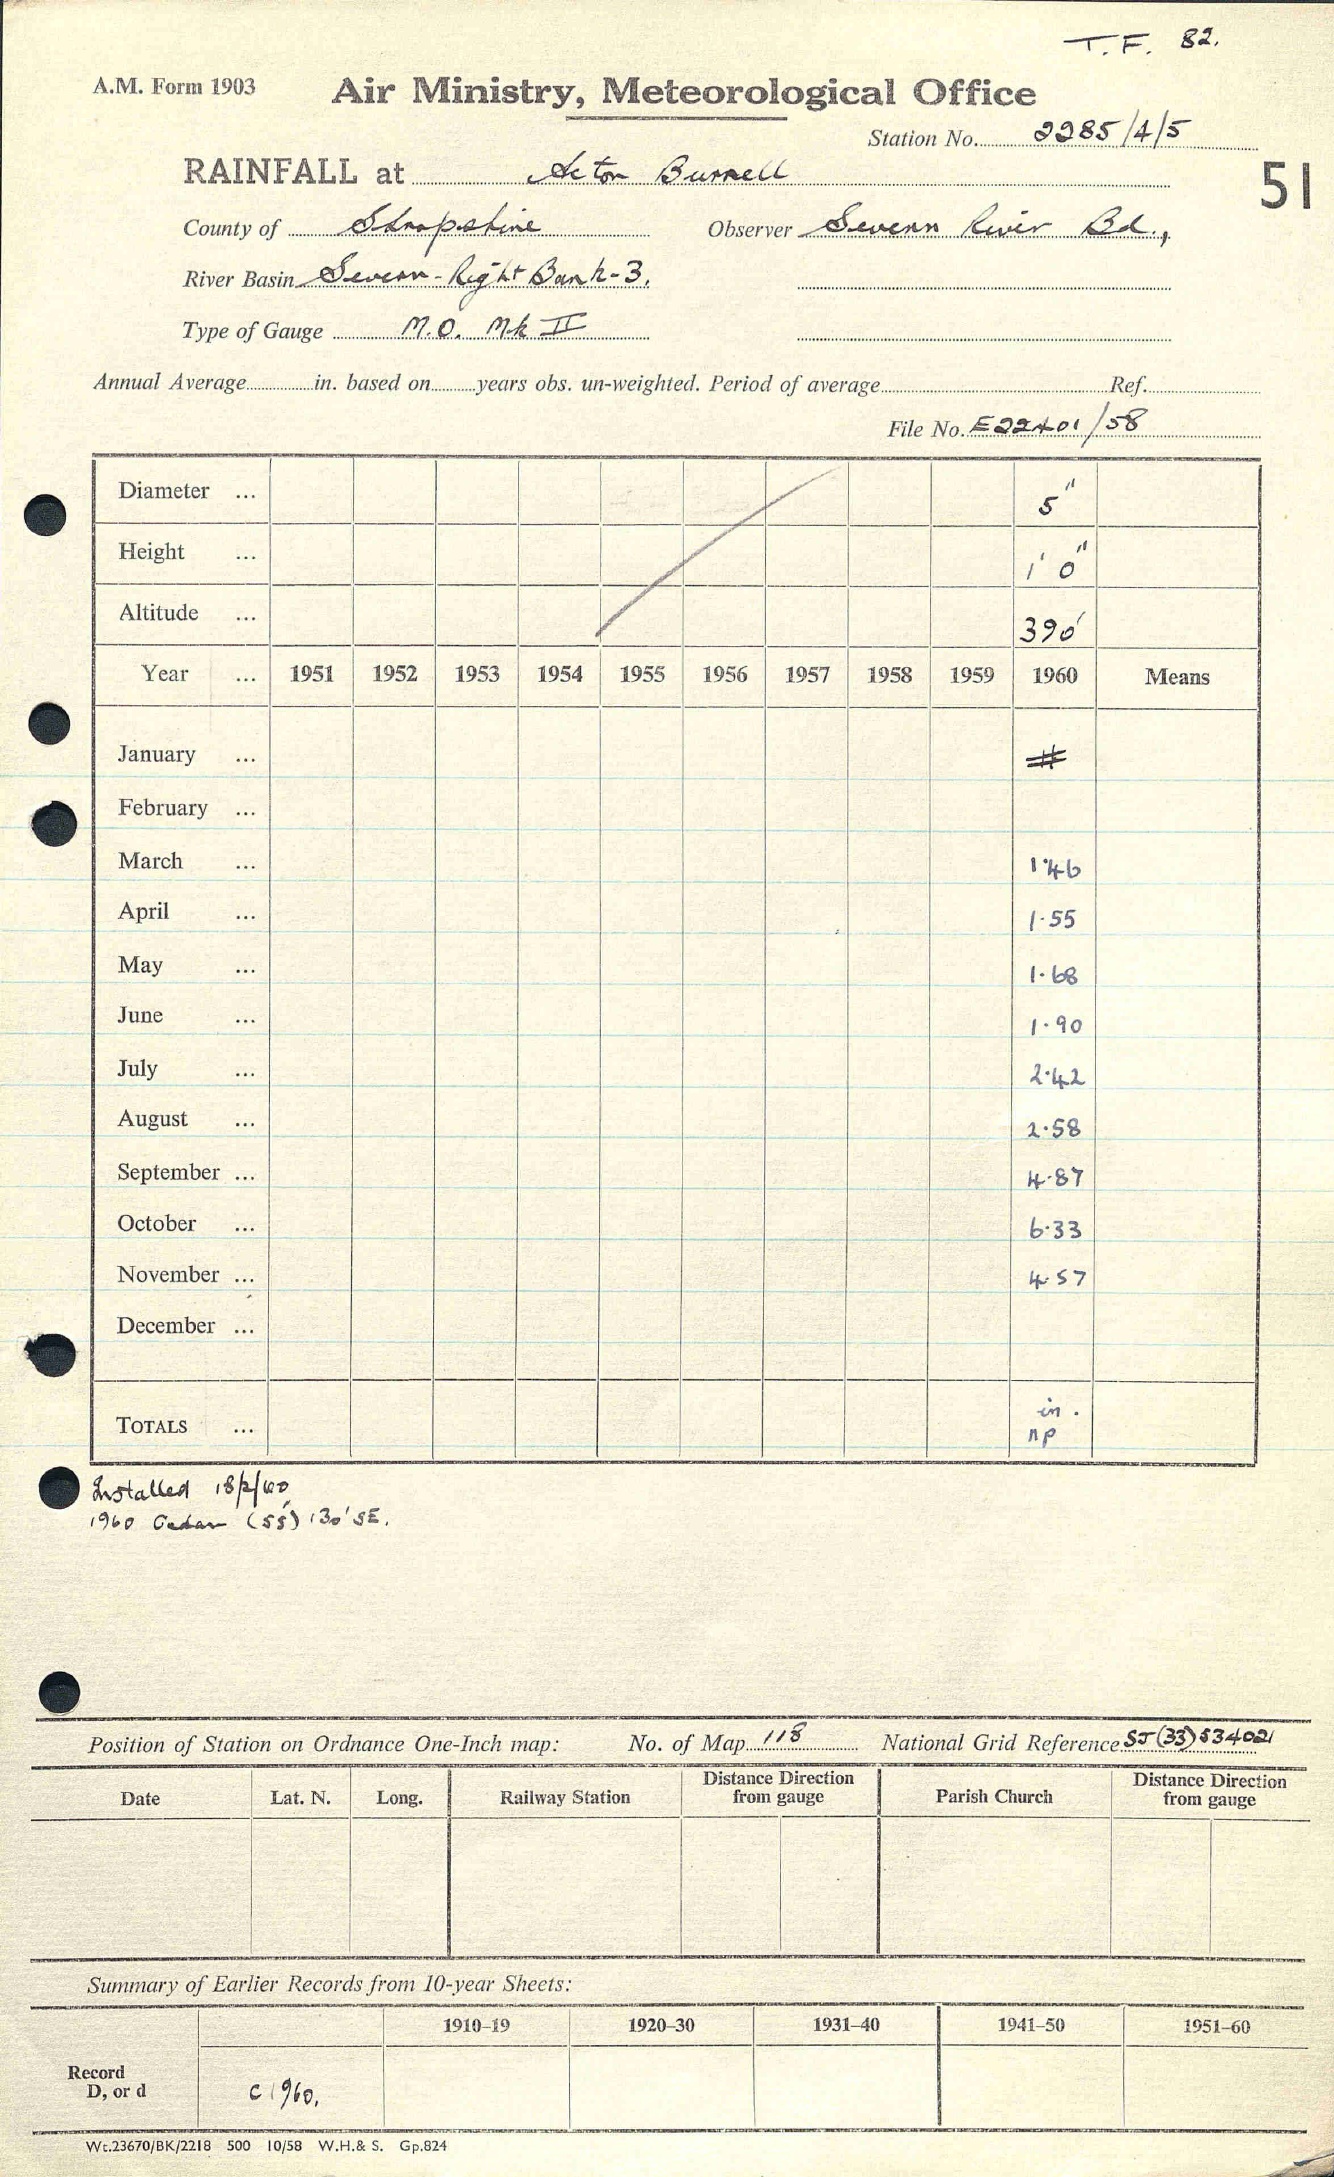 T.F. 82.
A.M. Form 1903 Air Ministry, Meteorological Office
Station No. 2285/4/5
RAINFALL at Acton Burnell
51
County of Shropshire Observer Severn River Bd.,
River Basin Severn - Right Bank - 3.
Type of Gauge M.O. Mk II
Annual Average in. based on years obs. un-weighted. Period of average Ref.
File No. E22401/58
Diameter ... 5"
Height ... 1' 0"
Altitude ... 390'
Year ... 1951 1952 1953 1954 1955 1956 1957 1958 1959 1960 Means
January ... #
February ...
March ... 1·46
April ... 1·55
May ... 1·68
June ... 1·90
July ... 2·42
August ... 2·58
September ... 4·87
October ... 6·33
November ... 4·57
December ...
TOTALS ... in.
np
Installed 18/2/60
1960 Cedar (55') 130' SE.
Position of Station on Ordnance One-Inch map: No. of Map 118 National Grid Reference SJ(33)534021
Date Lat. N. Long. Railway Station Distance Direction from gauge Parish Church Distance Direction from gauge
Summary of Earlier Records from 10-year Sheets:
1910–19 1920–30 1931–40 1941–50 1951–60
Record
D, or d c1960.
Wt.23670/BK/2218 500 10/58 W.H.& S. Gp.824